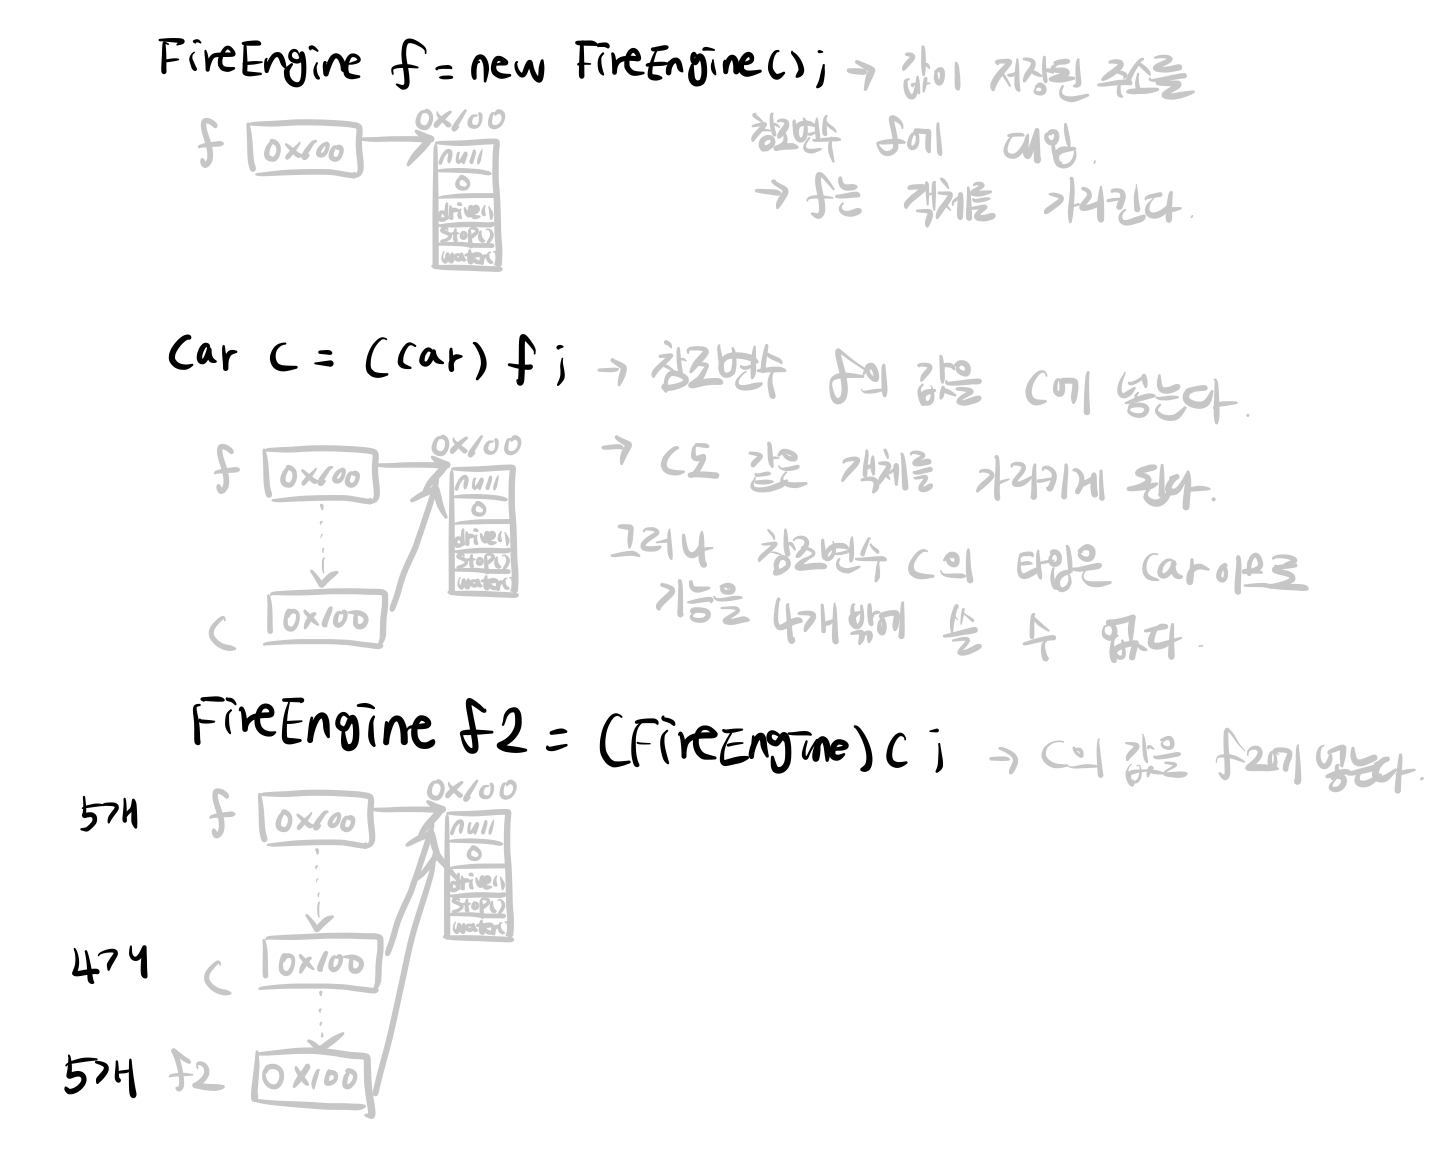 FireEngine f = new FireEngine(); → 값이 저장된 주소를
참조변수 f에 대입.
→ f는 객체를 가리킨다.
0x100
f 0x100
null
0
drive()
stop()
water()
Car c = (Car) f; → 참조변수 f의 값을 c에 넣는다.
→ c도 같은 객체를 가리키게 된다.
그러나 참조변수 c의 타입은 Car이므로
기능을 4개밖에 쓸 수 없다.
0x100
f 0x100
null
0
drive()
stop()
water()
c 0x100
FireEngine f2 = (FireEngine) c; → c의 값을 f2에 넣는다.
0x100
5개 f 0x100
null
0
drive()
stop()
water()
4개 c 0x100
5개 f2 0x100